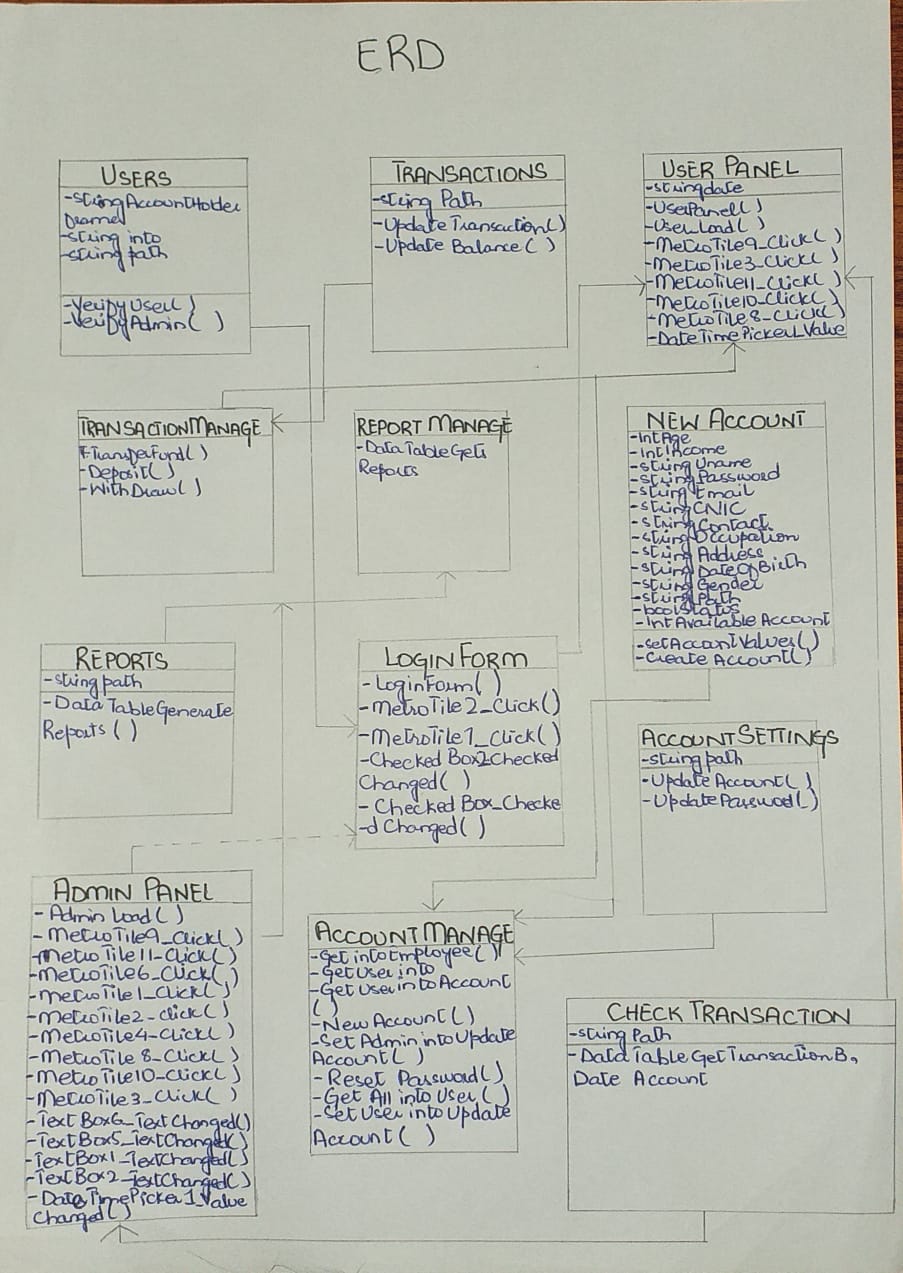 ERD
USERS
-String AccountHolder
name
-String info
-String path
-VerifyUser()
-VerifyAdmin( )
TRANSACTIONS
-String Path
-Update Transaction()
-Update Balance( )
USER PANEL
-Stringdate
-UserPanel()
-User Load( )
-MetroTile9_Click( )
-MetroTile3_Click( )
-MetroTile11_Click( )
-MetroTile10_Click( )
-MetroTile8_Click( )
-DateTimePicker1_Value
TRANSACTIONMANAGE
-TransferFund( )
-Deposit( )
-WithDraw( )
REPORT MANAGE
-DataTableGets
Reports
NEW ACCOUNT
-IntAge
-IntIncome
-String Uname
-String Password
-String Email
-String CNIC
-String Contact
-String Occupation
-String Address
-String DateOfBirth
-String Gender
-String Path
-boolStatus
-IntAvailableAccount
-SetAccountValues()
-Create Account()
REPORTS
-String path
-DataTableGenerate
Reports ( )
LOGIN FORM
-LoginForm( )
-MetroTile2_Click()
-MetroTile1_Click()
-Checked Box2_Checked
Changed( )
-Checked Box_Checke
-d Changed( )
ACCOUNT SETTINGS
-String path
-Update Account( )
-Update Password( )
ADMIN PANEL
-Admin Load( )
-MetroTile9_Click( )
-MetroTile11-Click( )
-MetroTile6_Click( )
-MetroTile1_Click( )
-MetroTile2-Click( )
-MetroTile4-Click( )
-MetroTile 8_Click( )
-MetroTile10-Click( )
-MetroTile3_Click( )
-Text Box6_TextChanged()
-TextBox5_TextChanged()
-TextBox1_TextChanged()
-TextBox2_TextChanged()
-DateTimePicker1_Value
Changed( )
ACCOUNT MANAGE
-Get info Employee( )
-Get User info
-Get User info Account
( )
-New Account( )
-Set Admin info Update
Account( )
-Reset Password( )
-Get All info User( )
-Set User info Update
Account ( )
CHECK TRANSACTION
-String Path
-DataTableGetTransactionB,
Date Account